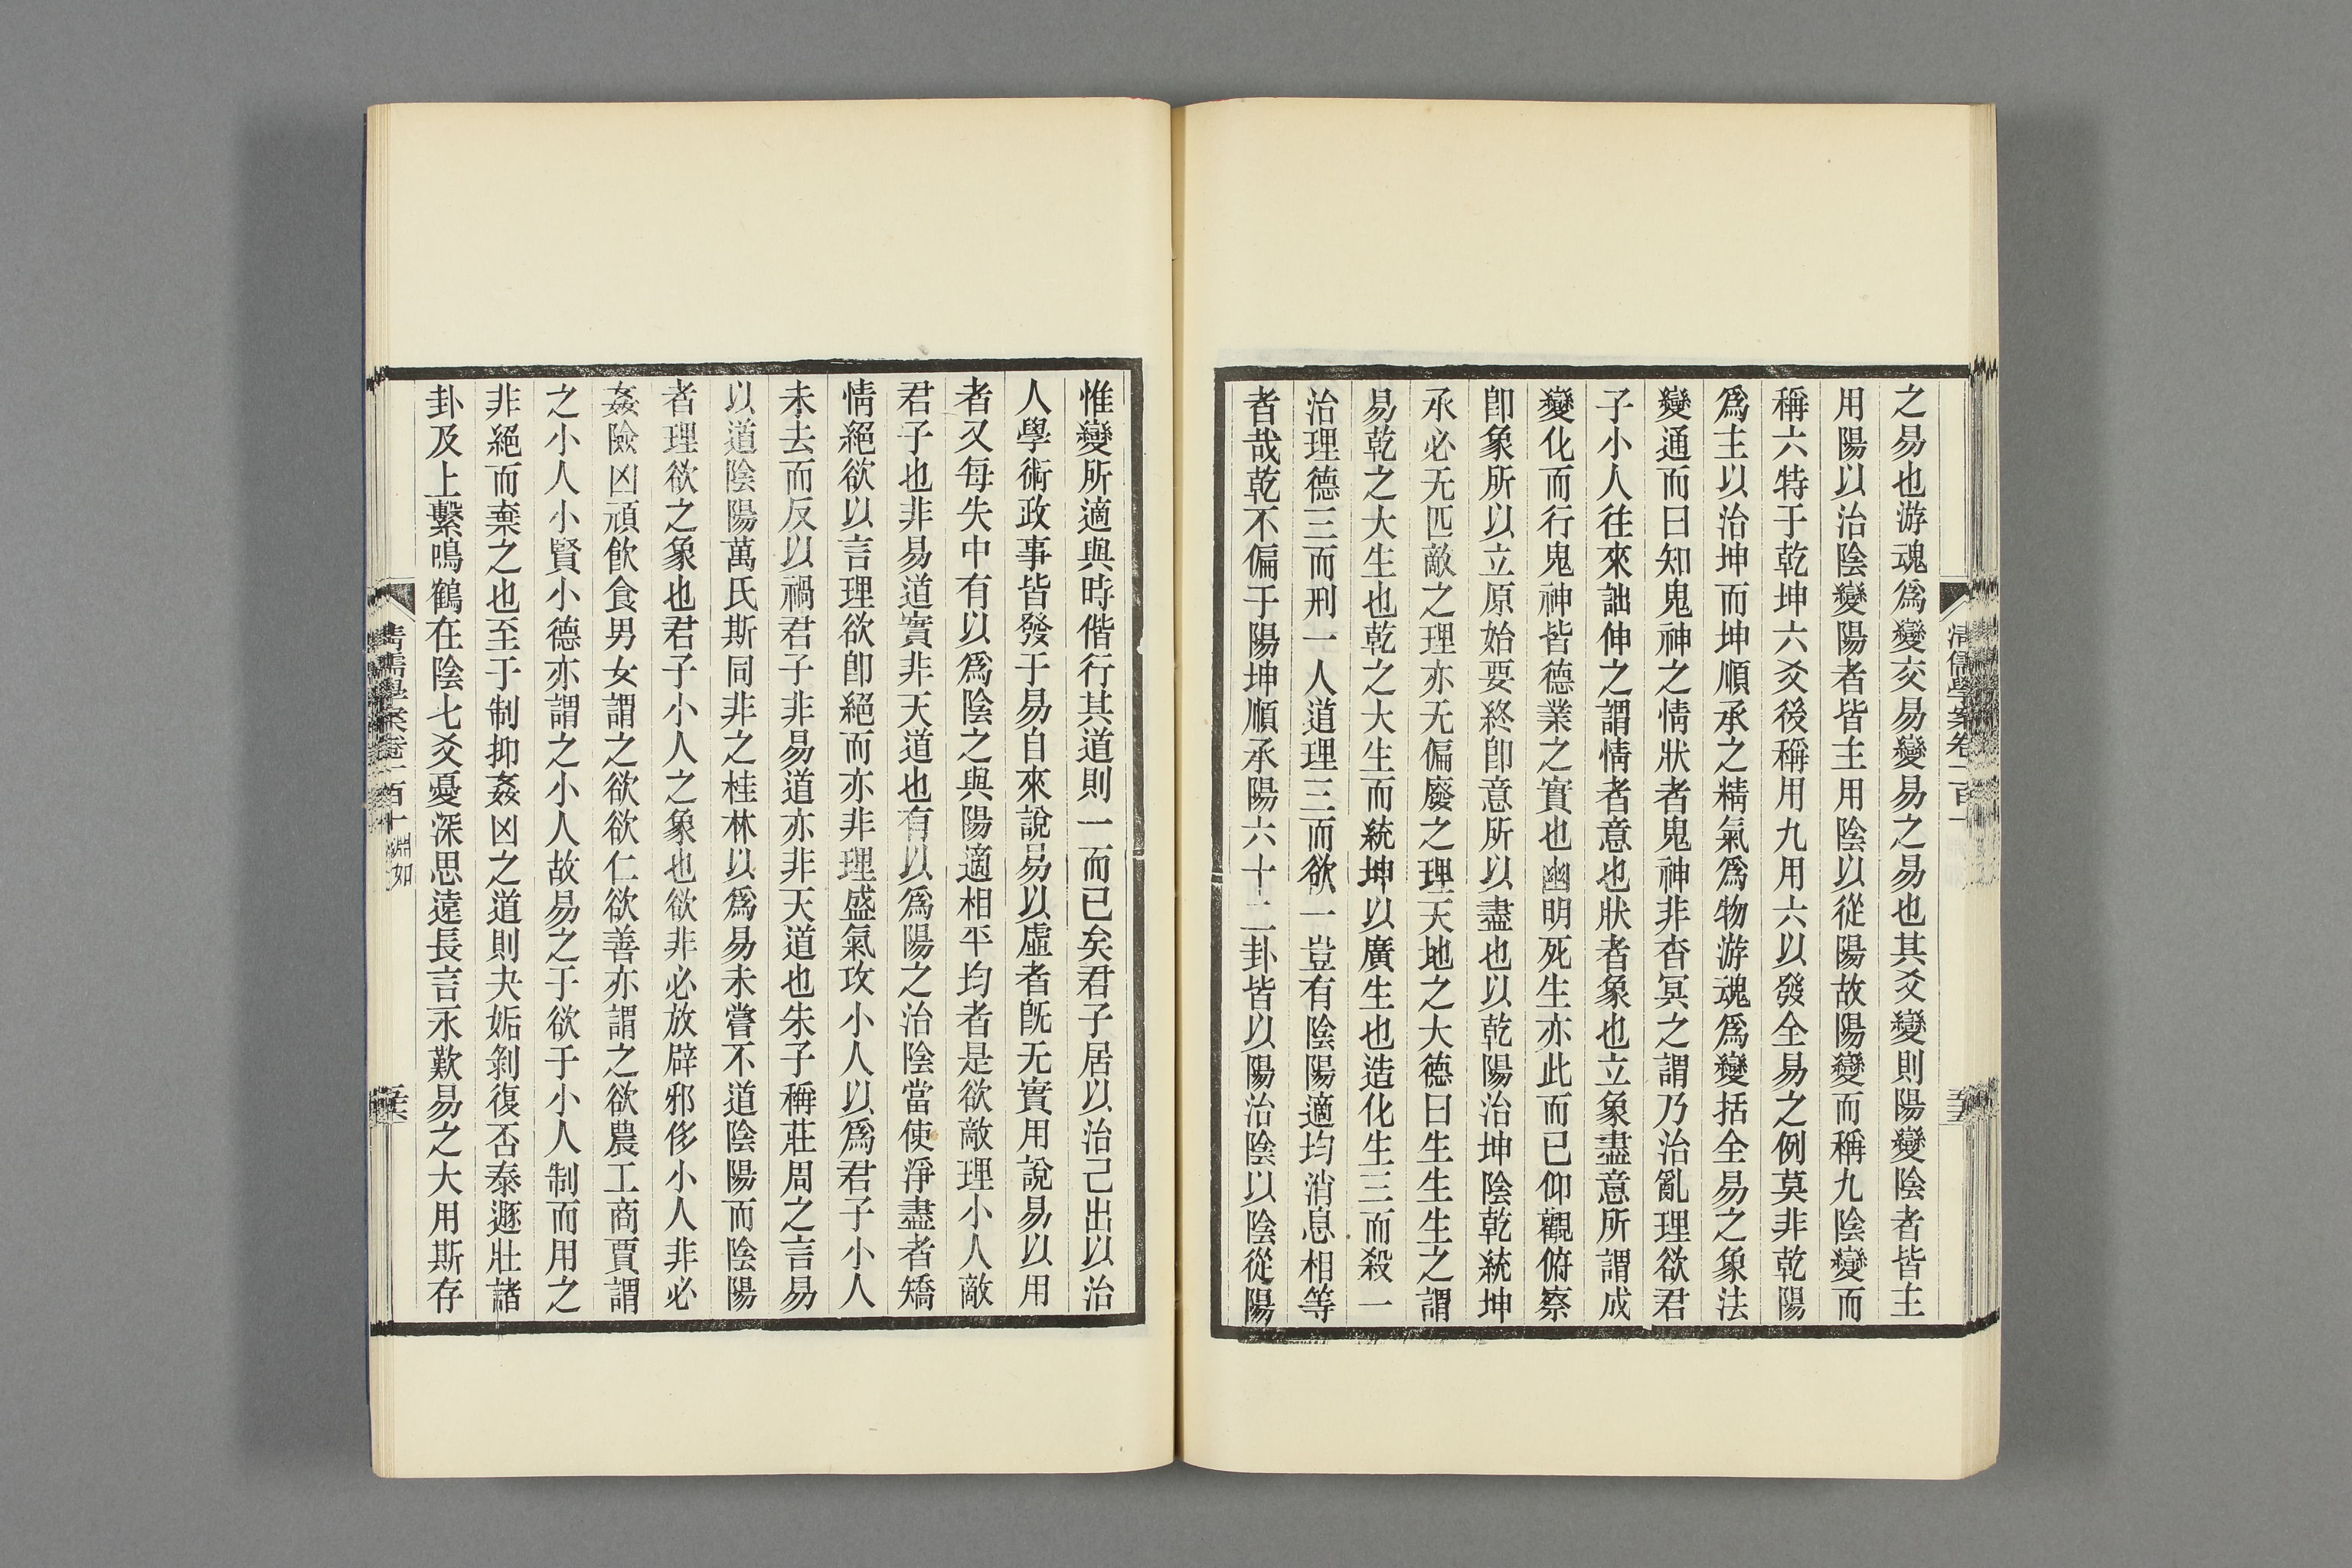 之易也游魂爲變交易變易之易也其爻變則陽變陰者皆主
用陽以治陰變陽者皆主用陰以從陽故陽變而稱九陰變而
稱六特于乾坤六爻後稱用九用六以發全易之例莫非乾陽
爲主以治坤而坤順承之精氣爲物游魂爲變括全易之象法
變通而曰知鬼神之情狀者鬼神非杳冥之謂乃治亂理欲君
子小人往來詘伸之謂情者意也狀者象也立象盡意所謂成
變化而行鬼神皆德業之實也幽明死生亦此而已仰觀俯察
卽象所以立原始要終卽意所以盡也以乾陽治坤陰乾統坤
承必无匹敵之理亦无偏廢之理天地之大德曰生生生之謂
易乾之大生也乾之大生而統坤以廣生也造化生三而殺一
治理德三而刑一人道理三而欲一豈有陰陽適均消息相等
者哉乾不偏于陽坤順承陽六十二卦皆以陽治陰以陰從陽
清儒學案卷一百十
惟變所適與時偕行其道則一而已矣君子居以治己出以治
人學術政事皆發于易自來說易以虛者旣无實用說易以用
者又每失中有以爲陰之與陽適相平均者是欲敵理小人敵
君子也非易道實非天道也有以爲陽之治陰當使淨盡者矯
情絕欲以言理欲卽絕而亦非理盛氣攻小人以爲君子小人
未去而反以禍君子非易道亦非天道也朱子稱莊周之言易
以道陰陽萬氏斯同非之桂林以爲易未嘗不道陰陽而陰陽
者理欲之象也君子小人之象也欲非必放辟邪侈小人非必
姦險凶頑飲食男女謂之欲欲仁欲善亦謂之欲農工商賈謂
之小人小賢小德亦謂之小人故易之于欲于小人制而用之
非絕而棄之也至于制抑姦凶之道則夬姤剝復否泰遯壯諸
卦及上繫鳴鶴在陰七爻憂深思遠長言永歎易之大用斯存
清儒學案卷一百十 淵如